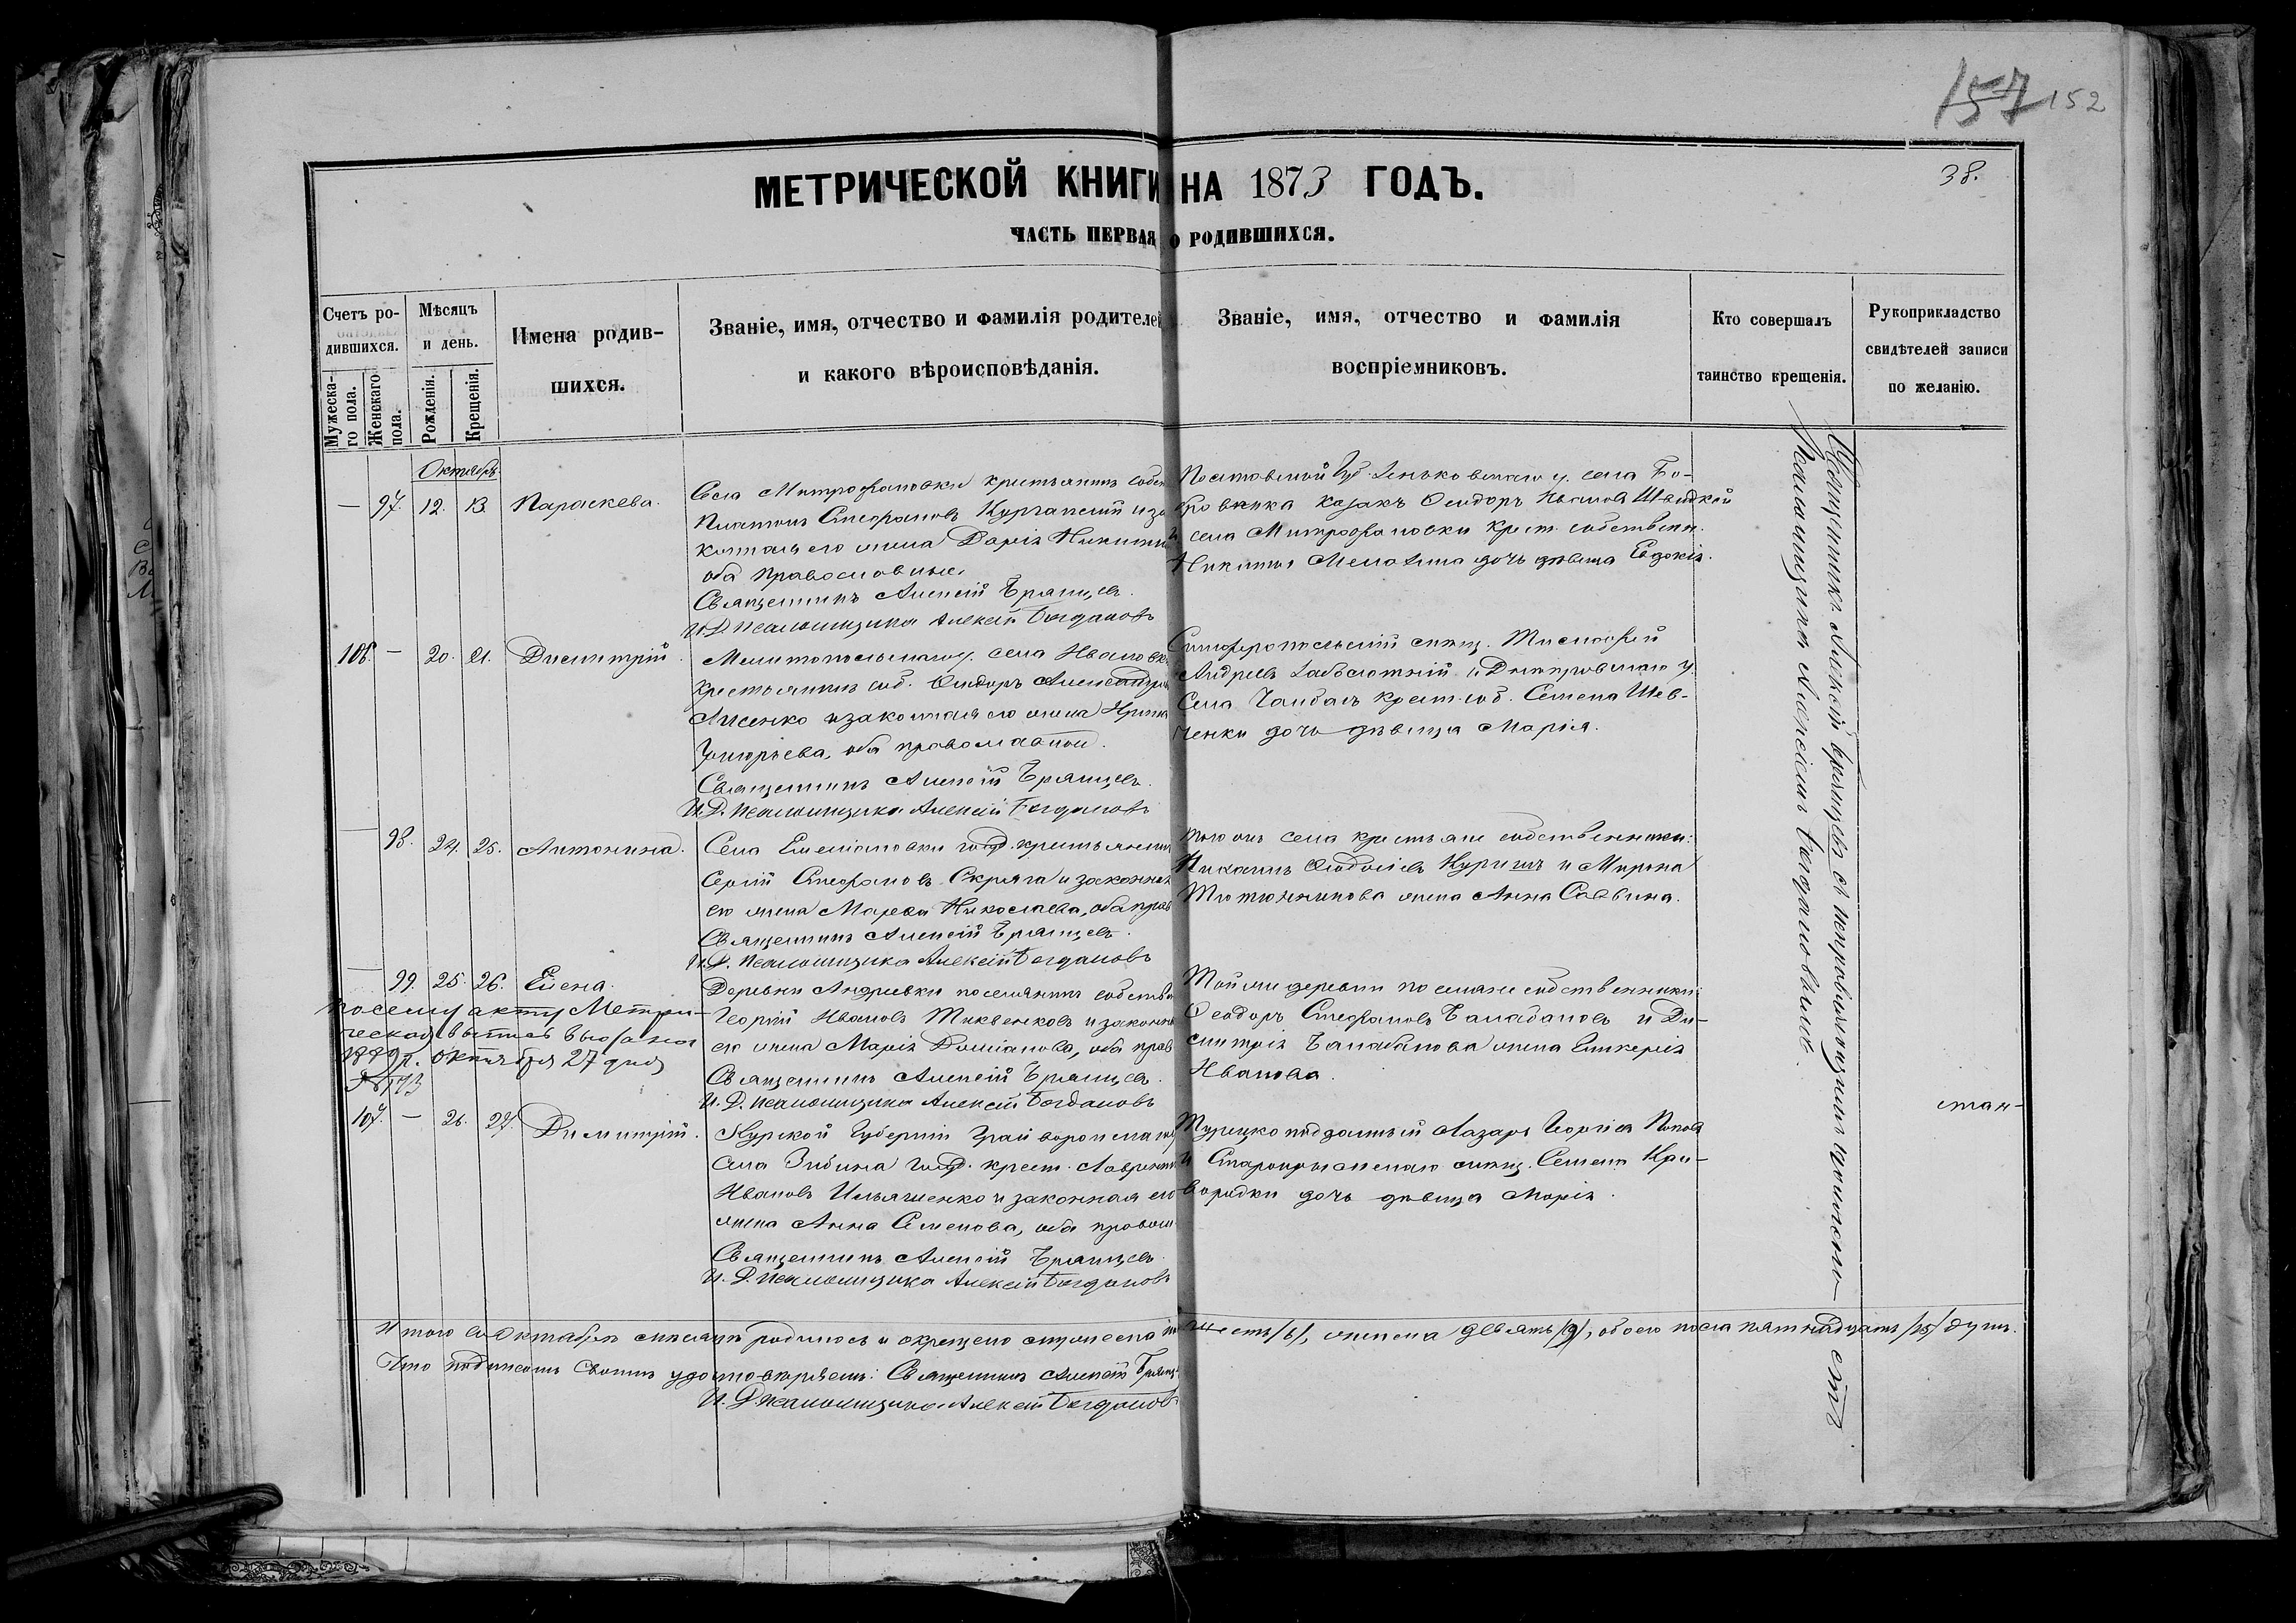 157 152
38.
МЕТРИЧЕСКОЙ КНИГИ НА 1873 ГОДЪ.
ЧАСТЬ ПЕРВАЯ О РОДИВШИХСЯ.
Счетъ родившихся.
Мужескаго пола.
Женскаго пола.
Мѣсяцъ и день.
Рожденія.
Крещенія.
Имена родившихся.
Званіе, имя, отчество и фамилія родителей
и какого вѣроисповѣданія.
Званіе, имя, отчество и фамилія
воспріемниковъ.
Кто совершалъ
таинство крещенія.
Рукоприкладство
свидѣтелей записи
по желанію.
Октябрь
— 97. 12. 13. Параскева.
Села Митрофановки крестьянинъ собст
Платонъ Стефановъ Курганскій и за
конная его жена Дарія Никитина
оба православные.
Священникъ Алексій Брянцевъ.
И. Д. псаломщика Алексѣй Богдановъ
Полтавской Губ. Зеньковскаго у. села Бо-
бровника казакъ Ѳеодоръ Ивановъ Швидкой
и села Митрофановки крест. собственн.
Никиты дочь дѣвица Евдокія.
106. — 20. 21. Димитрій.
Мелитопольскаго у. села Ивановки
крестьянинъ соб. Ѳеодоръ Александровъ
Лисенко и законная его жена Ирина
Григорьева, оба православные.
Священникъ Алексій Брянцевъ.
И. Д. псаломщика Алексѣй Богдановъ
Симферопольскій мѣщ. Тимофей
Андреевъ Заболотній и Днѣпровскаго у.
Села Чалбасъ крест. соб. Семена Шев-
ченки дочь дѣвица Марія.
— 98. 24. 25. Антонина.
Села Емеліановки госуд. крестьянинъ
Сергій Стефановъ Скряга и законная
его жена Марѳа Николаева, оба прав
Священникъ Алексій Брянцевъ.
И. Д. псаломщика Алексѣй Богдановъ
того же села крестьяне собственники:
Ѳеодосіевъ и Мирона
Тютюнникова жена Анна Саввина.
— 99. 25. 26. Елена.
По сему акту Метри-
ческая выпись выдана
1889 г. октября 27 дня
№ 173
Деревни Андреевки поселянинъ собств
Георгій Ивановъ и законная
его жена Марія Даміанова, оба прав
Священникъ Алексій Брянцевъ.
И. Д. псаломщика Алексѣй Богдановъ
Той же деревни поселяне собственники:
Ѳеодоръ Стефановъ Балабановъ и Ди-
митрія Балабанова жена
Иванова.
107. — 26. 27. Димитрій.
Курской Губерніи Грайворонскаго у
села Зибина госуд. крест. Лаврентій
Ивановъ Ильяшенко и законная его
жена Анна Семенова, оба правосл
Священникъ Алексій Брянцевъ
И. Д. псаломщика Алексѣй Богдановъ
Турецко подданный Лазарь Георгіев Поповъ
и Старокрымскаго мѣщ. Семена Кри-
воридки дочь дѣвица Марія.
Священникъ Алексій Брянцевъ съ исправляющимъ должность
Псаломщика Алексѣемъ Богдановымъ.
Итого въ Октябрѣ мѣсяцѣ родилось и окрещено мужеска шесть /6/, женска девять /9/, обоего пола пятнадцать /15/ душъ.
Что подписомъ своимъ удостовѣряемъ: Священникъ Алексій Брянц
И. Д. псаломщика Алексѣй Богдановъ